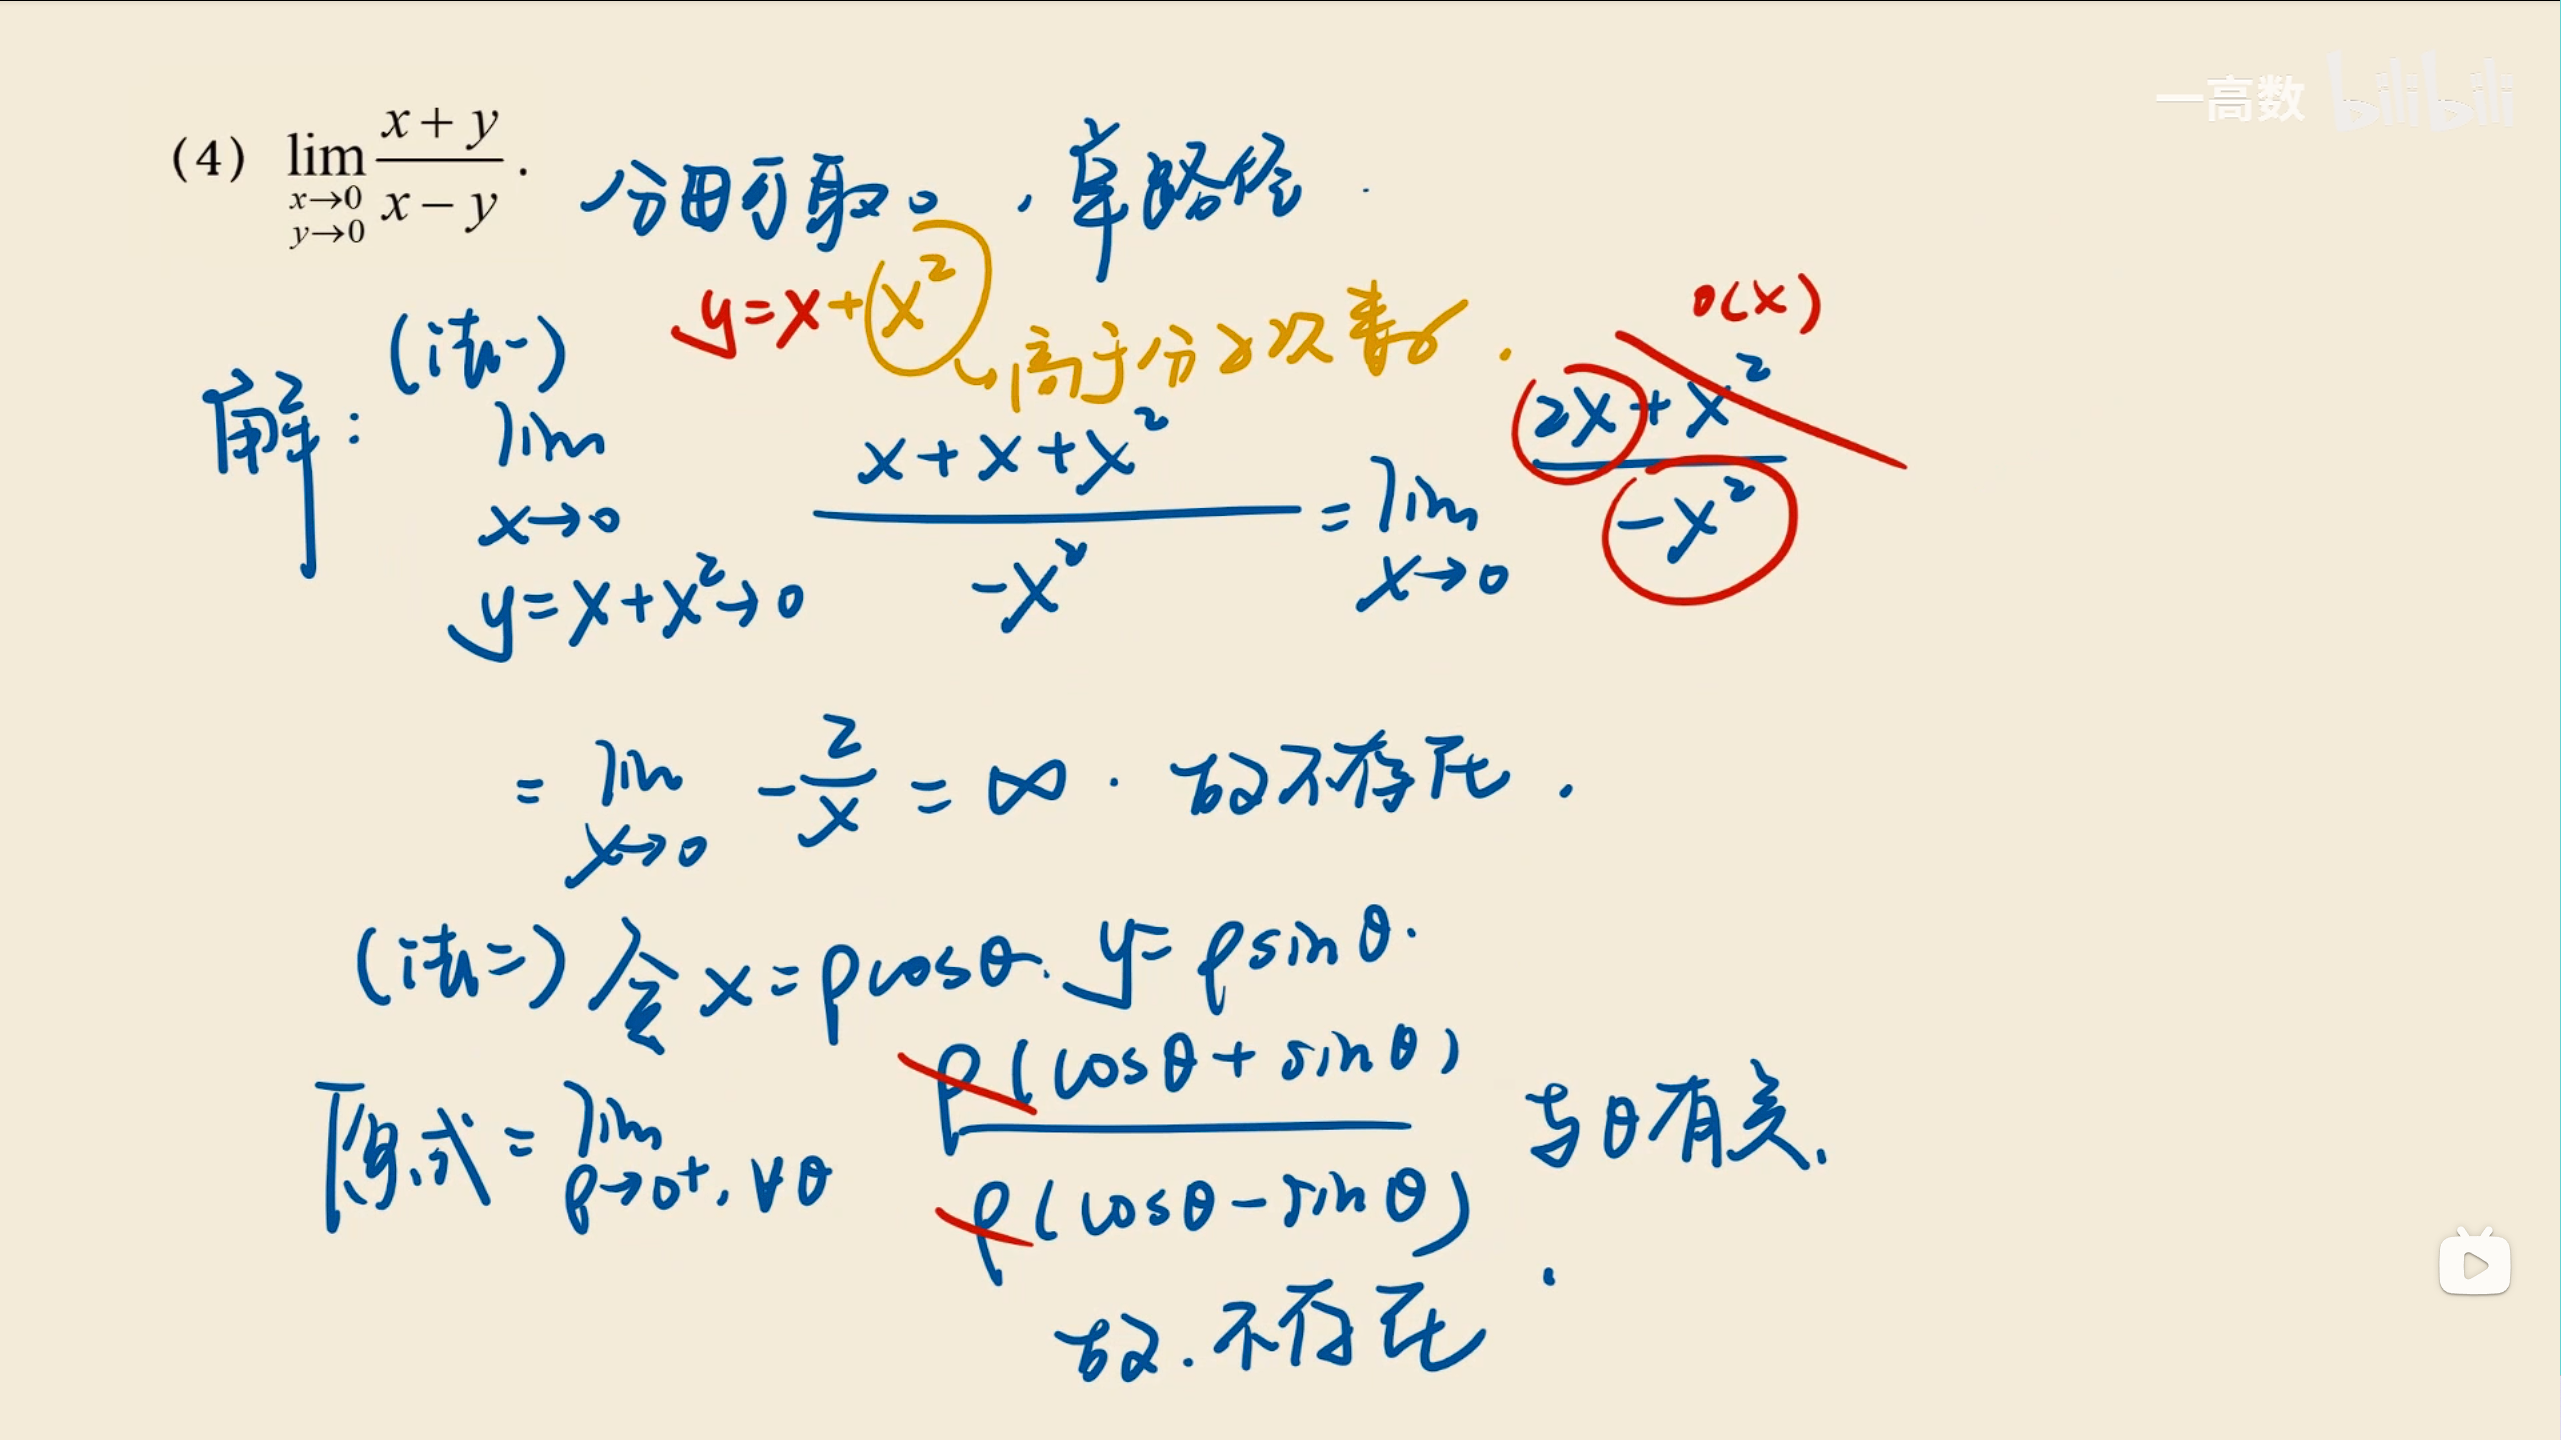 一高数 bilibili
(4) lim x→0 y→0 (x+y)/(x−y).
分母可取0，单路径.
y=x+x² 高于分子次数.
o(x)
解: (法一)
lim x→0 y=x+x²→0 (x+x+x²)/(−x²) = lim x→0 (2x+x²)/(−x²)
= lim x→0 −2/x = ∞. 故不存在.
(法二) 令 x=ρcosθ. y=ρsinθ.
原式= lim ρ→0⁺, ∀θ ρ(cosθ+sinθ)/ρ(cosθ−sinθ) 与θ有关.
故.不存在.